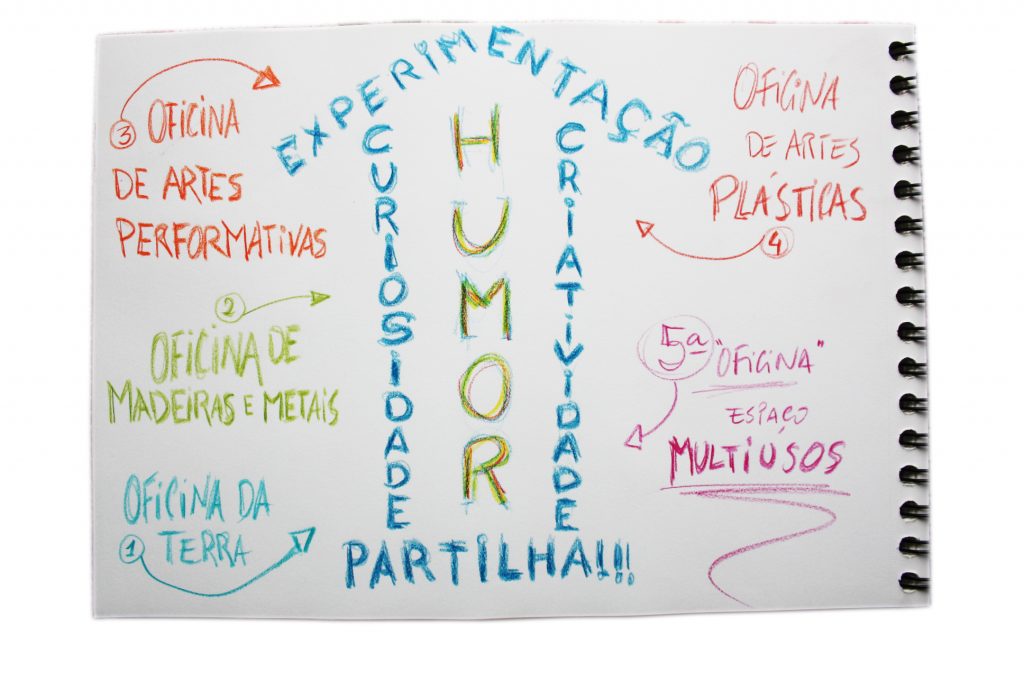 EXPERIMENTAÇÃO
CURIOSIDADE
HUMOR
CRIATIVIDADE
PARTILHA!!!
3 OFICINA
DE ARTES
PERFORMATIVAS
2
OFICINA DE
MADEIRAS E METAIS
OFICINA DA
1 TERRA
OFICINA
DE ARTES
PLÁSTICAS
4
5ª "OFICINA"
ESPAÇO
MULTIÚSOS